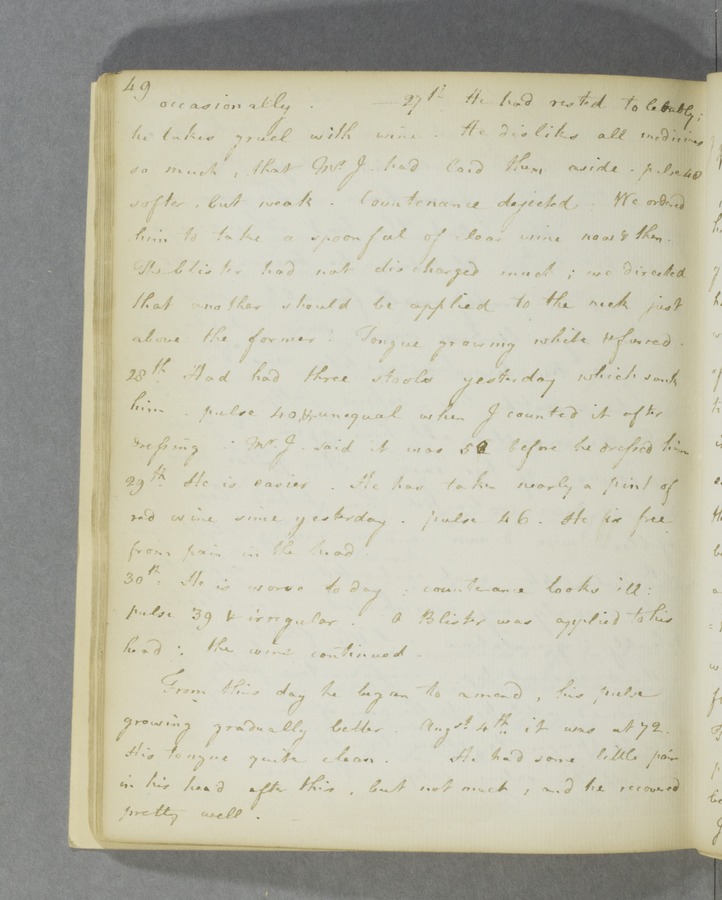 49
occasionally. — 27th He had rested tolerably;
he takes gruel with wine. He dislikes all medicines
so much, that Mr. J. had laid them aside. pulse 48
softer, but weak. Countenance dejected. We ordered
him to take a spoonful of clear wine now & then.
The blister had not discharged much; we directed
that another should be applied to the neck just
above the former: Tongue growing white & furred.
28th. Had had three stools yesterday which sunk
him. pulse 40, & unequal when I counted it after
dressing: Mr. J. said it was 50 before he dressed him
29th. He is easier. He has taken nearly a pint of
red wine since yesterday. pulse 46. He is free
from pain in the head.
30th. He is worse to day: countenance looks ill:
pulse 39 & irregular. A Blister was applied to his
head: the wine continued.
From this day he began to amend, his pulse
growing gradually better. Augst. 4th. it was at 72.
His tongue quite clean. He had some little pain
in his head after this, but not much, and he recovered
pretty well.